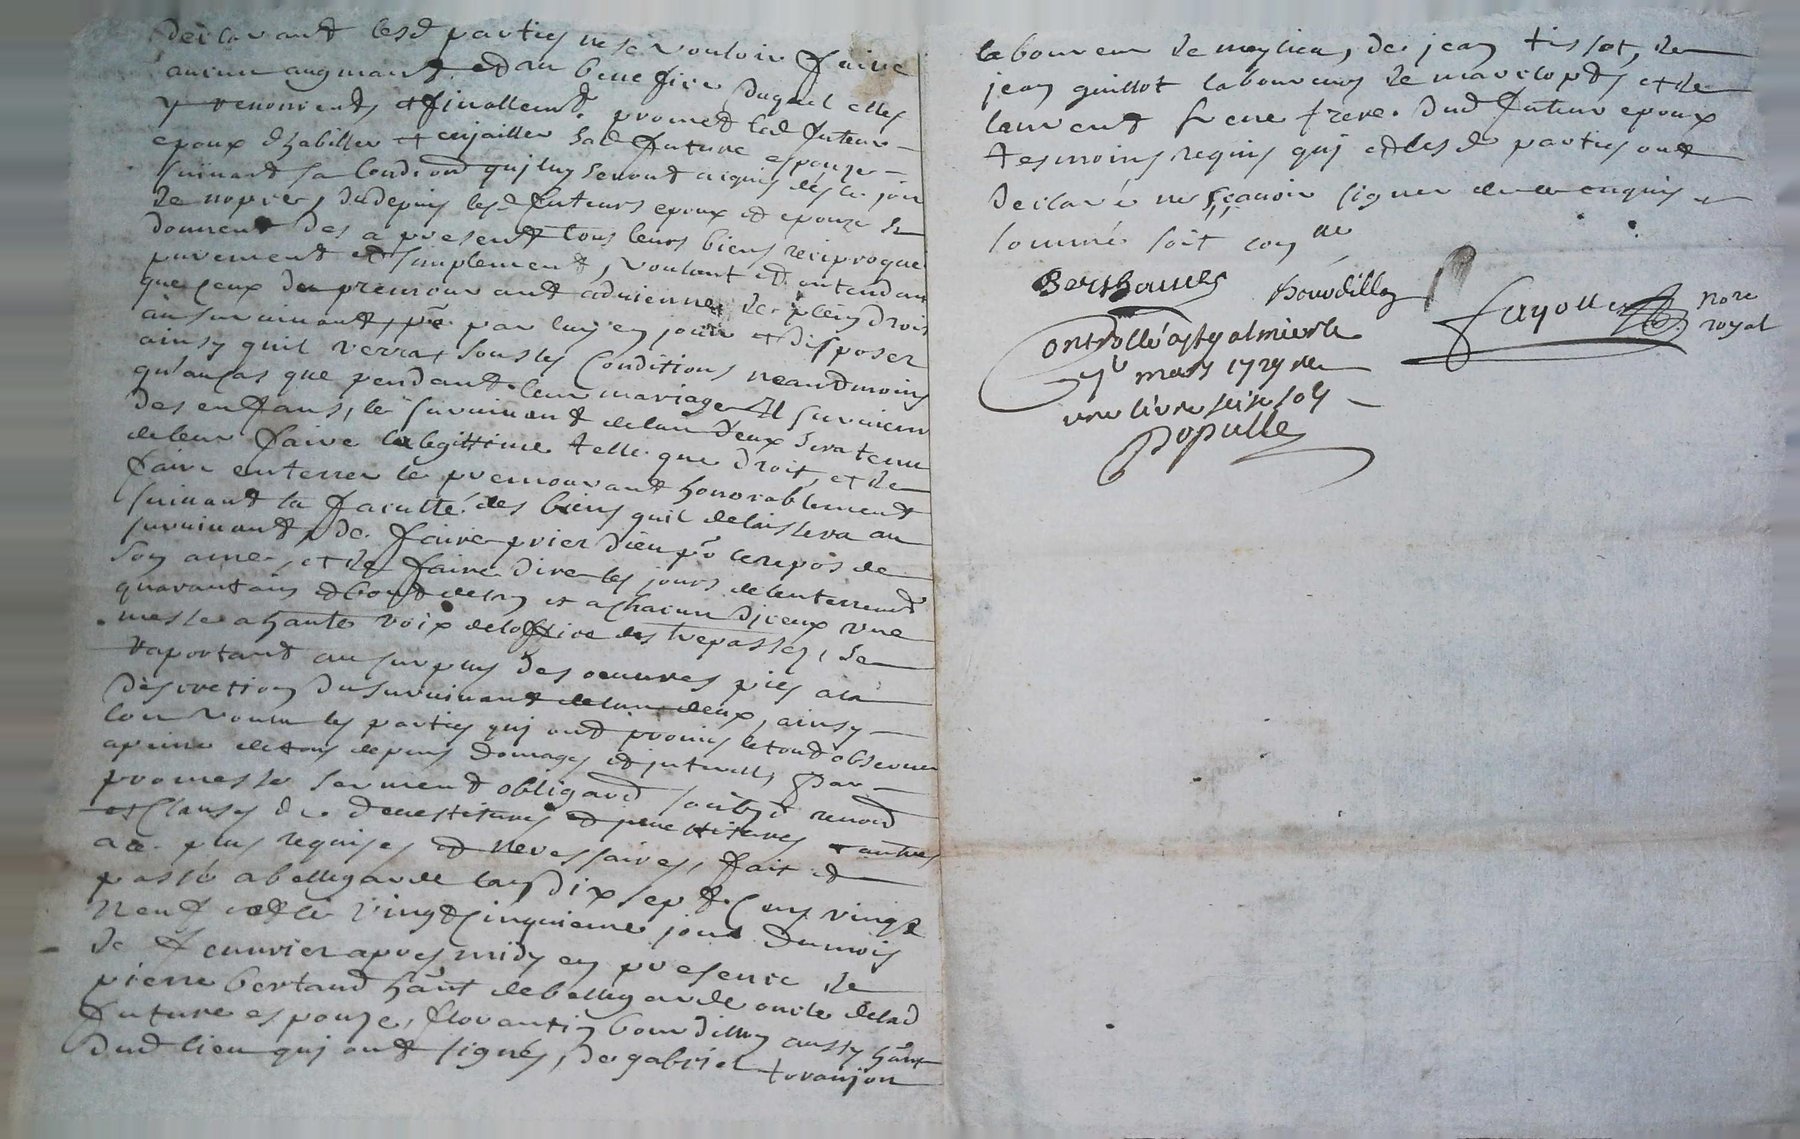 declarant lesd parties ne se vouloir faire
aucun augmant et au benefice duquel elles
y renoncent, et finallemt promet led futeur
epoux d'habiller et enjailler sad future espouze
suivant sa condiõn qui luy seront acquis dés le jour
de nopces, du depuis lesd futeurs epoux et epouze se
donnent des a present tous leurs biens reciproque
purement et simplement, voulant et entendant
que ceux du premourant advienne de plein droit
au survivant, pr par luy en jouir et disposer
ainsy quil verra, sous les conditions neandmoins
qu'au cas que pendant leur mariage il survienne
des enfans, le survivant delun d'eux sera tenu
de leur faire la legittime telle que droit, et de
faire enterrer le premourant honorablement
suivant la faculté des biens quil delaissera au
survivant, de faire prier dieu pr le repos de
son ame, et de faire dire les jours de lenterremt
quarantain et bout de lan et a chacun djceux une
messe a haute voix de loffice des trepassez, se
raportant au surplus des oeuvres pies a la
discretion du survivant de lun deux, ainsy
lon voulu les parties qui ont promis le tout observer
a peine de tous depens domages et interests, par
promesse serment obligaõn soubzõn renonõn
et clauses de devestitures et jnvestitures et autres
a ce plus requises et necessaires, fait et
passé a bellegarde lan dix sept cens vingt
neuf et le vingt cinquieme jour du mois
de fevrier apres midy en presence de
pierre bertand hãnt de bellegarde oncle de lad
future espouze, florantin bourdillon aussy hãnt
dud lieu qui ont signés, de gabriel tovanjon
laboureur de meylieu, de jean tissot, de
jean guillot laboureurs de marclopt, et de
laurent frere dud futeur epoux
tesmoins requis qui et lesd parties ont
declaré ne sçavoir signer de ce enquis et
sommé soit con lle
Bourdillon
fayolle nore
royal
Controllé a st galmier le
mars 1729 reçu
une livre seize sols
Populle